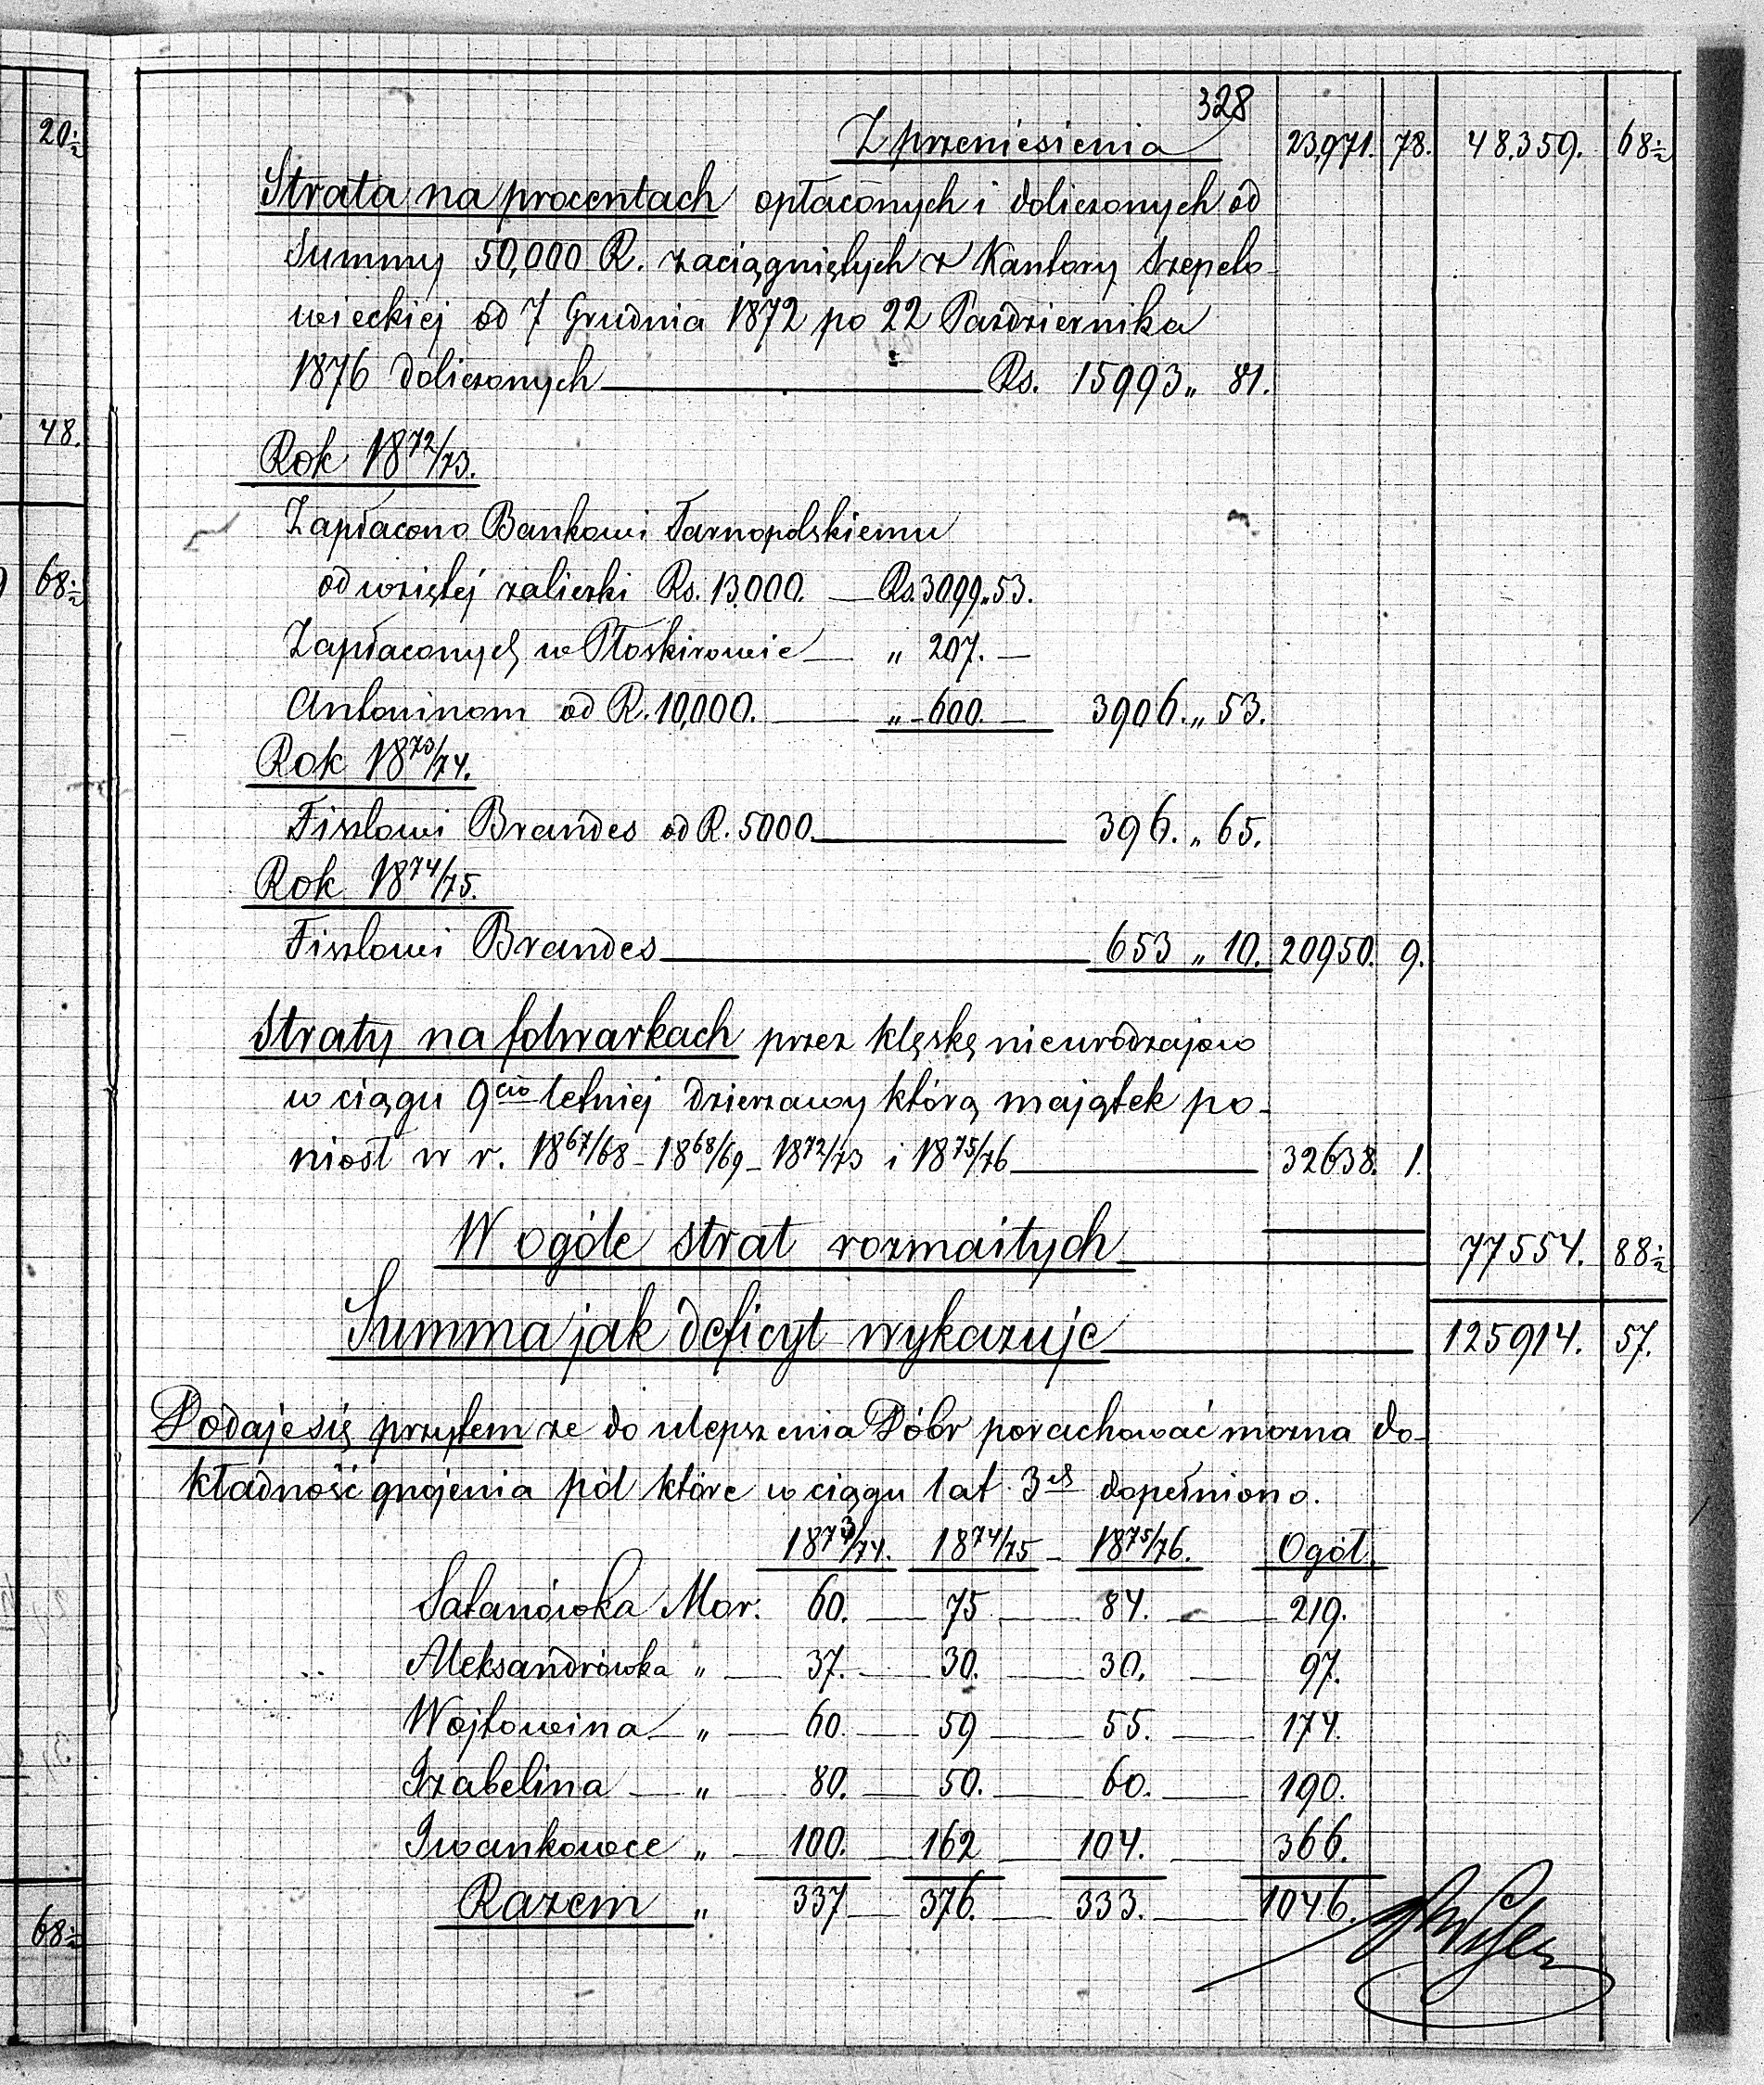 20½
48.
68½
68½
328
Z przeniesienia 23,971. 78. 48,359. 68½
Strata na procentach opłaconych i doliczonych od
Summy 50,000 R. zaciągniętych z Kantory Szepeto-
wieckiej od 7 Grudnia 1872 po 22 Października
1876 doliczonych — Rs. 15993 „ 81.
Rok 1872/73.
Zapłacono Bankowi Tarnopolskiemu
od wziętej zaliczki Rs. 13,000. — Rs. 3099 „ 53.
Zapłaconych w Płoskirowie — „ 207. —
Antoninom od R. 10,000. — „ 600. — 3906. „ 53.
Rok 1873/74.
Fiszlowi Brandes od R. 5000. — 396. „ 65.
Rok 1874/75.
Fiszlowi Brandes — 653 „ 10. 20950. 9.
Straty na folwarkach przez klęskę nieurodzajów
w ciągu 9cio letniej dzierzawy którą majątek po-
niosł w r. 1867/68 - 1868/69 - 1872/73 i 1875/76 — 32638. 1.
W ogóle strat rozmaitych — 77554. 88½
Summa jak deficyt wykazuje — 125914. 57.
Podaje się przytem ze do ulepszenia Dóbr porachować mozna do-
kładność gnojenia pól które w ciągu lat 3ch dopełniono.
1873/74. 1874/75 - 1875/76. Ogół.
Satanówka Mor. 60. — 75 — 84. — 219.
Aleksandrówka „ — 37. — 30. — 30. — 97.
Wojtowina „ — 60. — 59 — 55. — 174.
Izabelina — „ — 80. — 50. — 60. — 190.
Iwankowce „ — 100. — 162 — 104. — 366.
Razem „ 337 — 376. — 333. — 1046.